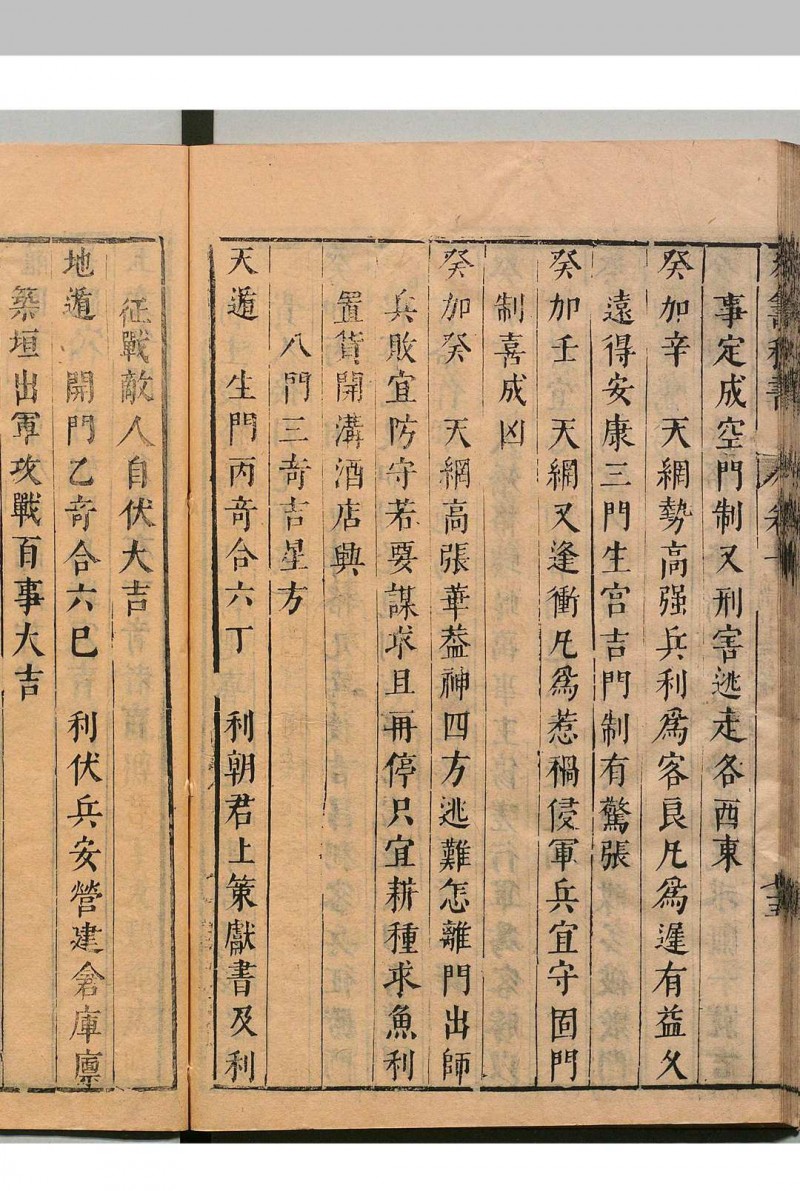 事定成空門制又刑害逃走各西東
癸加辛　天網勢高强兵利爲客良凡爲遲有益久
遠得安康三門生宮吉門制有驚張
癸加壬　天網又逢衝凡爲惹禍侵軍兵宜守固門
制喜成凶
癸加癸　天網高張華葢神四方逃難怎離門出師
兵敗宜防守若要謀求且再停只宜耕種求魚利
置貨開溝酒店興
八門三竒吉星方
天遁　生門丙竒合六丁　利朝君上策獻書及利
征戰敵人自伏大吉
地遁　開門乙竒合六巳　利伏兵安營建倉庫廪
築垣出軍攻戰百事大吉